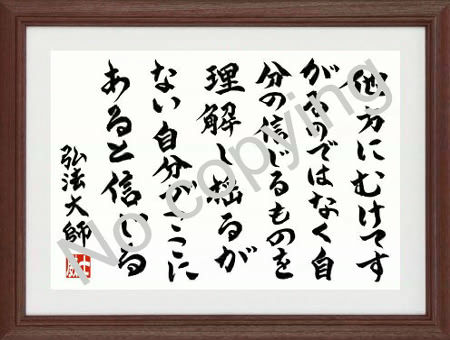 他方にむけてす
がるのではなく自
分の信じるものを
理解し揺るが
ない自分がここに
あると信じる
弘法大師
No copying